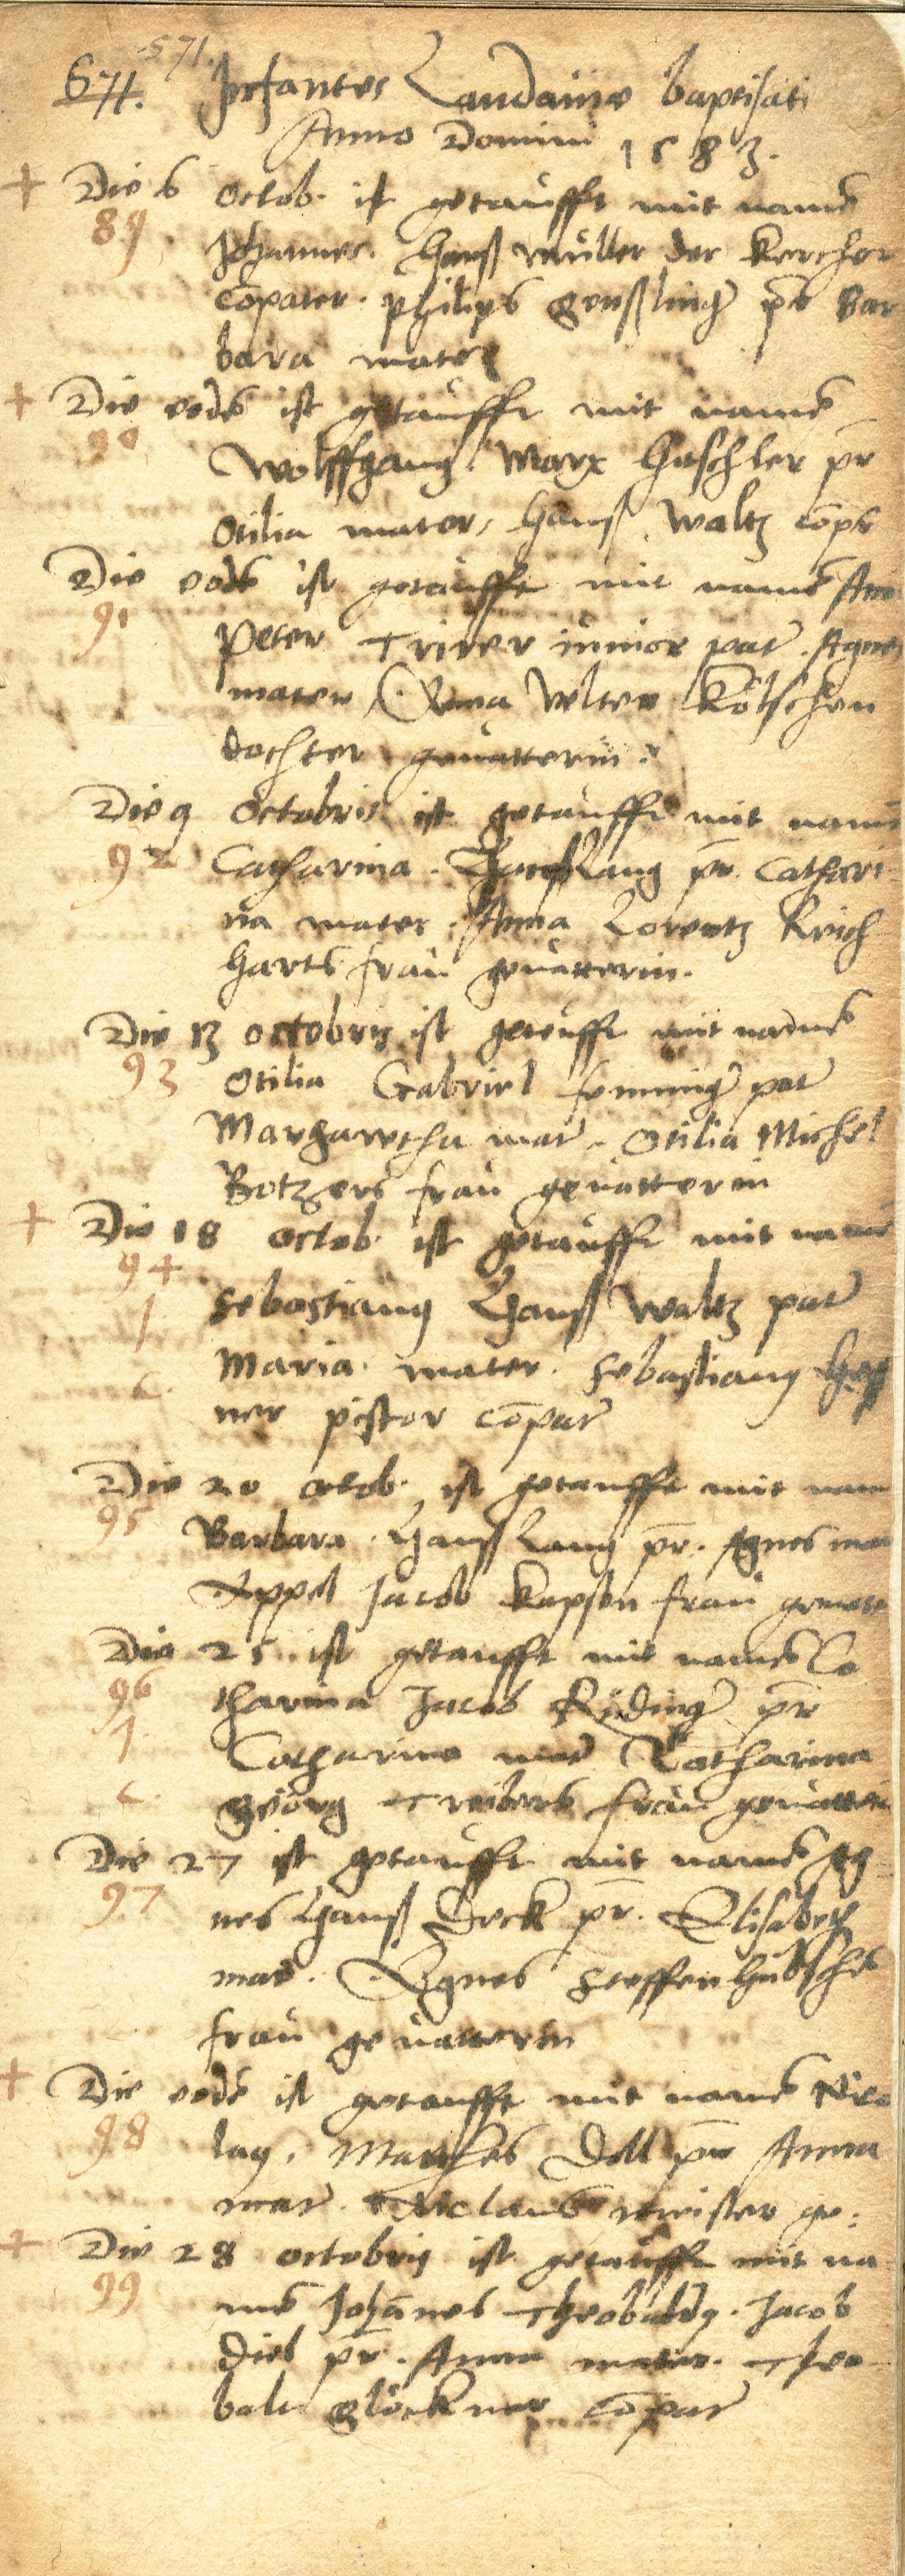 571.
671. Infantes Landauiae baptisati
Anno Domini 1583.
+ Die 6 octob. ist getaufft mit namē
89 Johannes. Hanß müller der kercher
cōpater. Philips Genßlinger pr Bar
bara mater
+ Die eodē ist getaufft mit namē
90 Wolffgang. Marx Heschler pr
Otilia mater, Hanß Waltz cōpr
Die eodē ist getaufft mit namē Ann
91 Peter Triver iunior pater. Agnes
mater Anna Velten Kölschen
dochter gevatterin.
Die 9 Octobris ist getaufft mit namē
92 Catharina. Hans Lang pr. Cathari
na mater. Anna Lorentz Reich
harts frau gevatterin.
Die 13 octobris ist getaufft mit namē
93 Otilia Gabriel pater
Margaretha mater. Otilia Michel
Botzers frau gevatterin
+ Die 18 octob. ist getaufft mit namē
94
1 Sebastianus Hanß Waltz pater
c. Maria mater. Sebastianus Heß
ner pistor cōpater
Die 20 octob. ist getaufft mit nam
95 Barbara. Hanß Lang pr. Agnes mat
Appel Jacob Kapsen frau gevatt
Die 25 ist getaufft mit namē Ca
96 tharina Jacob Rüdinger pr
1. Catharina mater Katharina
c. Geörg Treibers frau gevatterin
Die 27 ist getaufft mit namē Ag
97 nes Hanß Beck pr. Elisabeth
mater. Agnes Steffen Hübsches
frau gevatterin
+ Die eodē ist getaufft mit namē Nico
98 laus. Matthes Doll pr Anna
mater. Niclaus meister ge:
+ Die 28 octobris ist getaufft mit na
99 mē Johānes Theobaldus. Jacob
Diel pr. Anna mater. Theo
balt Glöckner cōpater